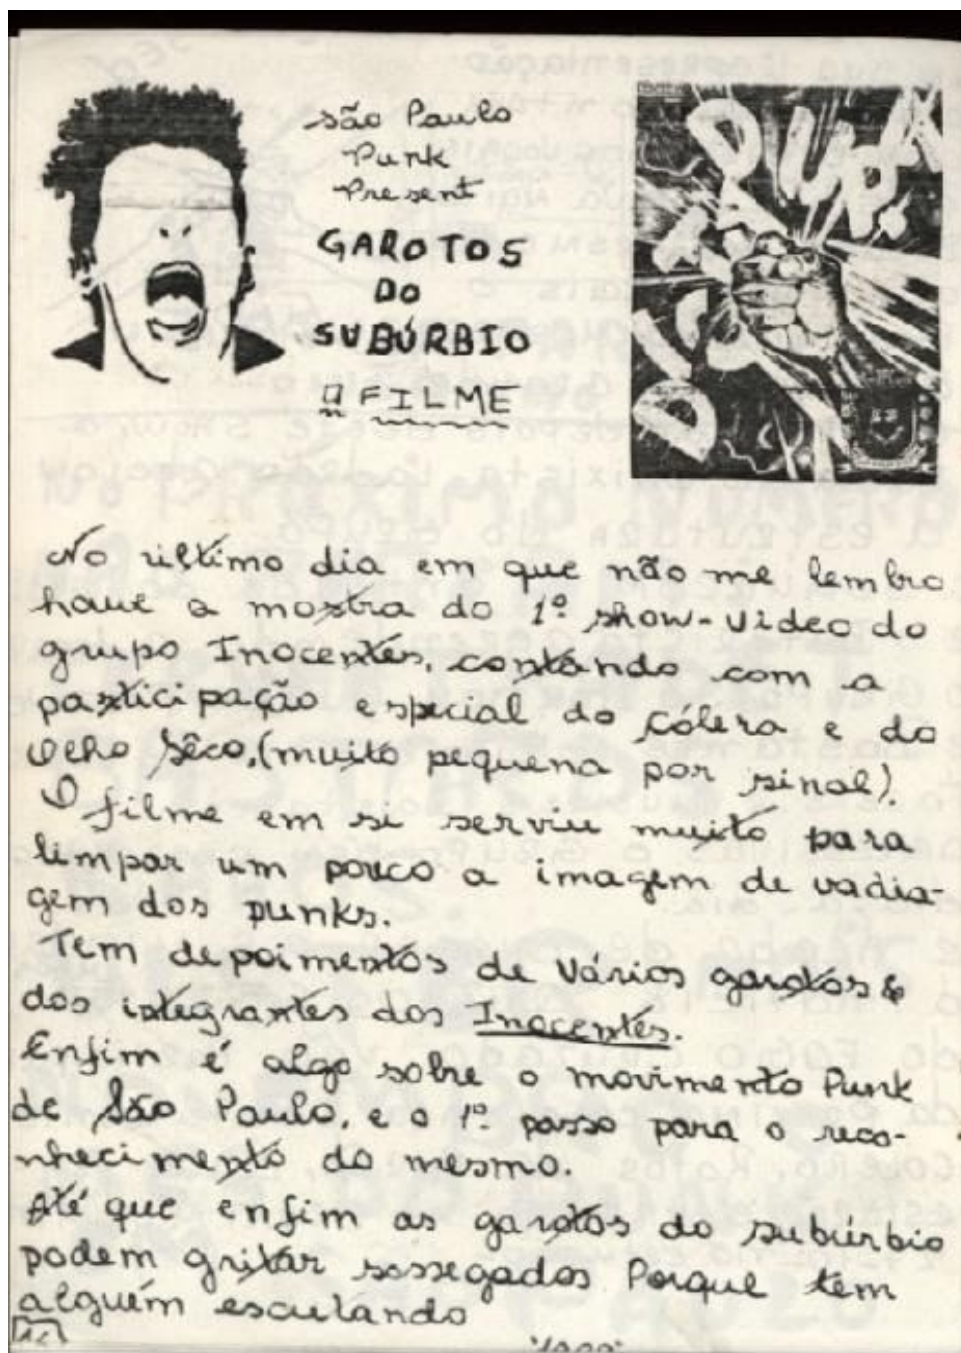 são Paulo
Punk
Present
GAROTOS
DO
SUBÚRBIO
O FILME
No último dia em que não me lembro
houve a mostra do 1º show-video do
grupo Inocentes, contando com a
participação especial do cólera e do
olho Sêco, (muito pequena por sinal).
O filme em si serviu muito para
limpar um pouco a imagem de vadia-
gem dos punks.
Tem depoimentos de Vários garotos &
dos integrantes dos Inocentes.
Enfim é algo sobre o movimento Punk
de São Paulo, e o 1º passo para o reco-
nhecimento do mesmo.
Até que enfim os garotos do subúrbio
podem gritar sossegados Porque tem
alguém escutando